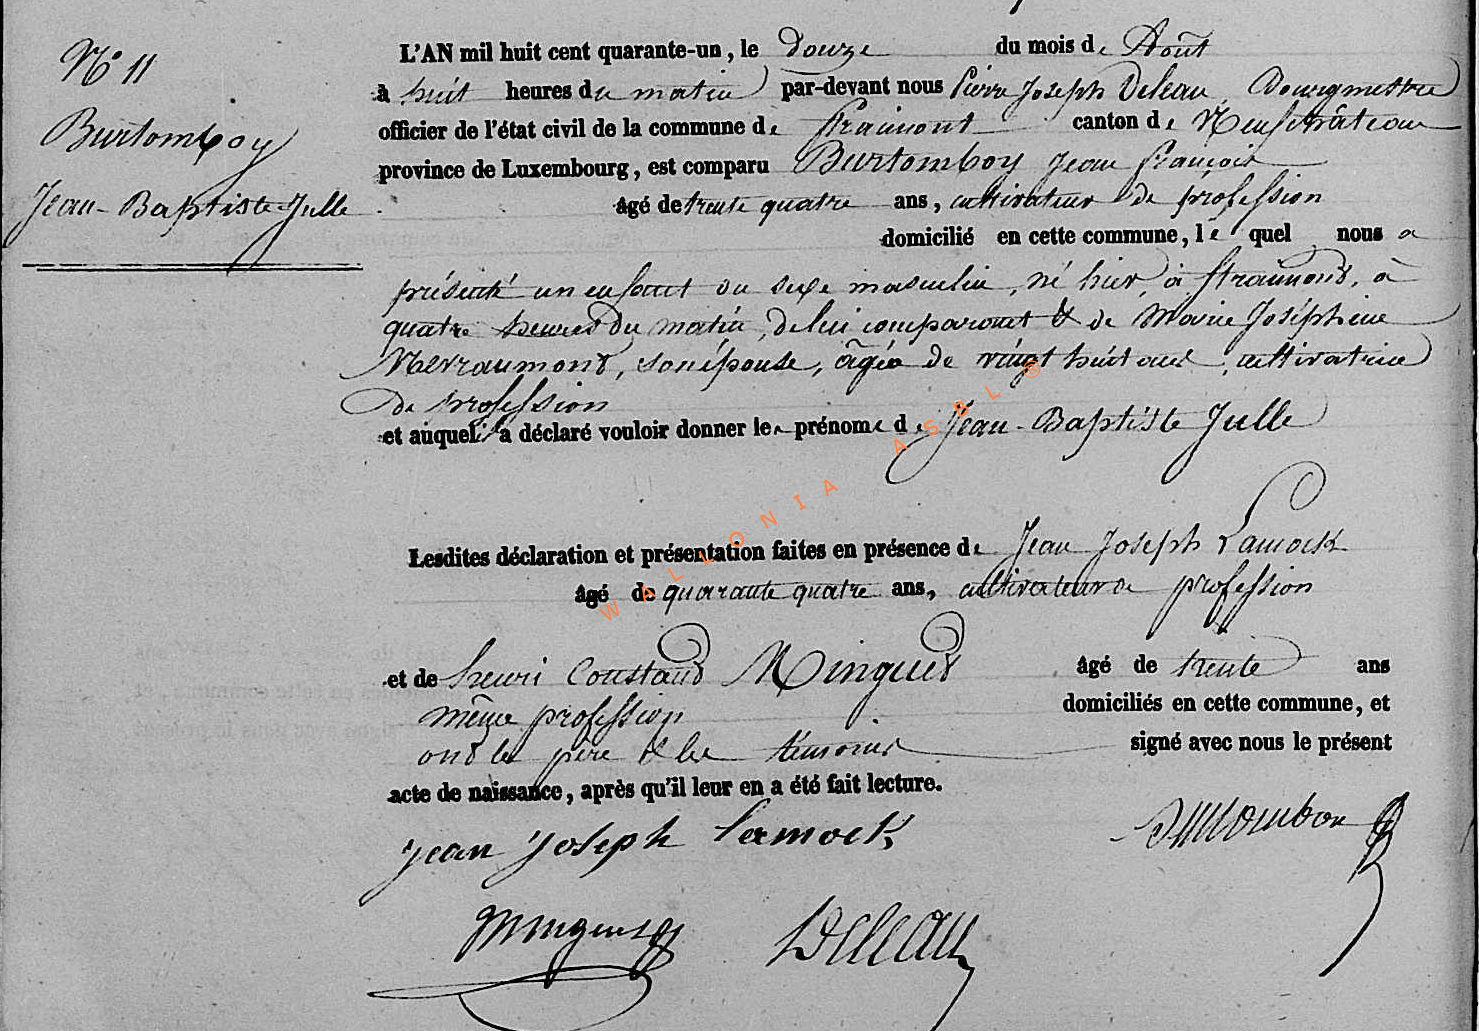 N° 11
Burtomboy
Jean-Baptiste Julle
L'AN mil huit cent quarante-un, le Douze du mois de Août
à huit heures du matin par-devant nous Pierre Joseph Deleau, Bourgmestre
officier de l'état civil de la commune de Straimont canton de Neufchâteau
province de Luxembourg, est comparu Burtomboy Jean françois
âgé de trente quatre ans, cultivateur de profession
domicilié en cette commune, lequel nous a
présenté un enfant du sexe masculin, né hier, à Straimont, à
quatre heures du matin, de lui comparant & de Marie Joséphine
son épouse, âgée de vingt huit ans, cultivatrice
de profession
et auquel il a déclaré vouloir donner les prénoms de Jean-Baptiste Julle
Lesdites déclaration et présentation faites en présence de Jean Joseph Lamock
âgé de quarante quatre ans, cultivateur de profession
et de henri Constant Minguet âgé de trente ans
même profession domiciliés en cette commune, et
ont le père & les témoins signé avec nous le présent
acte de naissance, après qu'il leur en a été fait lecture.
jean joseph Lamock
Deleau
WALLONIA ASBL ©